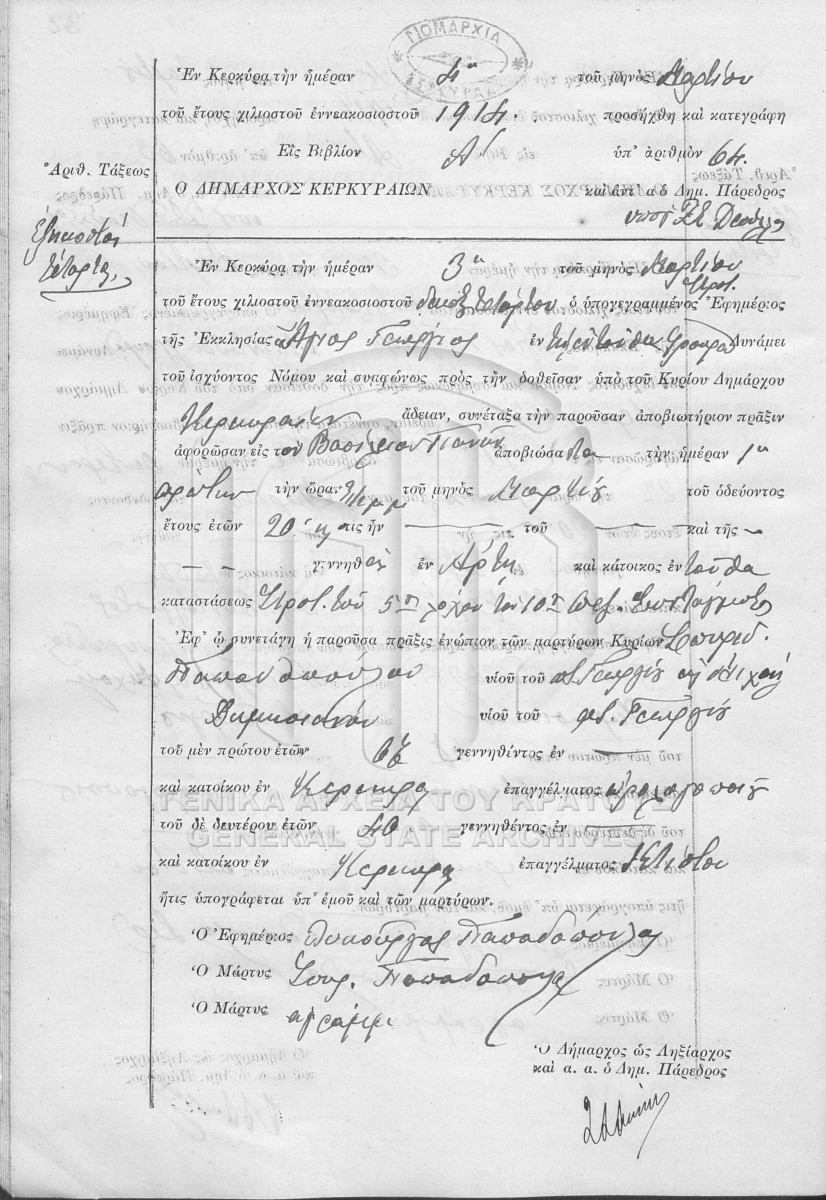 ΔΗΜΑΡΧΙΑ
ΚΕΡΚΥΡΑΣ
Ἐν Κερκύρᾳ τὴν ἡμέραν 4η τοῦ μηνὸς Μαρτίου
τοῦ ἔτους χιλιοστοῦ ἐννεακοσιοστοῦ 1914. προσήχθη καὶ κατεγράφη
Εἰς Βιβλίον Α' ὑπ' ἀριθμὸν 64.
Ἀριθ. Τάξεως
Ο ΔΗΜΑΡΧΟΣ ΚΕΡΚΥΡΑΙΩΝ καὶ ἀντ' α. ὁ Δημ. Πάρεδρος
Ἑξηκοστὴ
τετάρτη
Ἐν Κερκύρᾳ τὴν ἡμέραν 3η τοῦ μηνὸς Μαρτίου
τοῦ ἔτους χιλιοστοῦ ἐννεακοσιοστοῦ δεκάτου τετάρτου ὁ ὑπογεγραμμένος Στρατ. Ἐφημέριος
τῆς Ἐκκλησίας Ἅγιος Γεώργιος ἐν ἐνταῦθα Φρουρίῳ Δυνάμει
τοῦ ἰσχύοντος Νόμου καὶ συμφώνως πρὸς τὴν δοθεῖσαν ὑπὸ τοῦ Κυρίου Δημάρχου
Κερκυραίων ἄδειαν, συνέταξα τὴν παροῦσαν ἀποβιωτήριον πρᾶξιν
ἀφορῶσαν εἰς τὸν Βασίλειον ἀποβιώσαντα τὴν ἡμέραν 1η
πρώτην τὴν ὥραν μμ τοῦ μηνὸς Μαρτίου τοῦ ὁδεύοντος
ἔτους ἐτῶν 20 τις ἦν τοῦ καὶ τῆς
γεννηθεὶς ἐν Ἄρτῃ καὶ κάτοικος ἐνταῦθα
καταστάσεως Στρατ. τοῦ 5ου λόχου τοῦ 10ου Πεζ. Συντάγματος
Ἐφ' ᾧ συνετάγη ἡ παροῦσα πρᾶξις ἐνώπιον τῶν μαρτύρων Κυρίων Σπυρίδ.
Παπαδοπούλου υἱοῦ τοῦ Γεωργίου
υἱοῦ τοῦ Γεωργίου
τοῦ μὲν πρώτου ἐτῶν γεννηθέντος ἐν
καὶ κατοίκου ἐν Κερκύρᾳ ἐπαγγέλματος ὡρολογοποιοῦ
τοῦ δὲ δευτέρου ἐτῶν 40 γεννηθέντος ἐν
ΓΕΝΙΚΑ ΑΡΧΕΙΑ ΤΟΥ ΚΡΑΤΟΥΣ
GENERAL STATE ARCHIVES
καὶ κατοίκου ἐν Κερκύρᾳ ἐπαγγέλματος
ἥτις ὑπογράφεται ὑπ' ἐμοῦ καὶ τῶν μαρτύρων.
Ὁ Ἐφημέριος Λυκοῦργος Παπαδόπουλος
Ὁ Μάρτυς Σπυρ. Παπαδόπουλος
Ὁ Μάρτυς ἀγράμμ.
Ὁ Δήμαρχος ὡς Ληξίαρχος
καὶ α. α. ὁ Δημ. Πάρεδρος